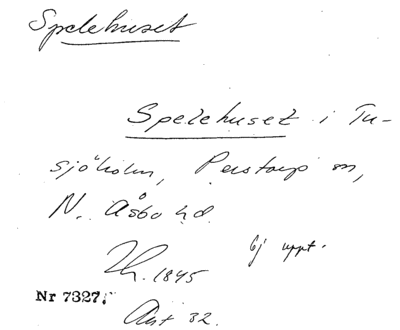 Spelehuset
Spelehuset i Tu-
sjöholm, Perstorp sn,
N. Åsbo hd.
Ej uppt.
Th. 1845
Nr 7327.
Ant 32.